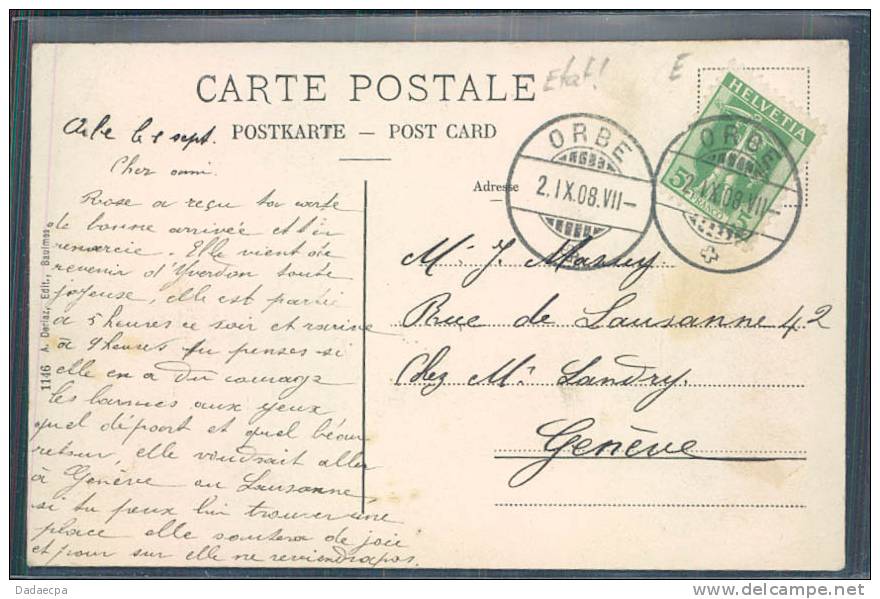 CARTE POSTALE
POSTKARTE – POST CARD
Etat! E
Orbe le 1 sept.
Cher ami.
Rose a reçu ta carte
de bonne arrivée et t'en
remercie. Elle vient de
revenir d'Yverdon toute
joyeuse, elle est partie
à 5 heures ce soir et rarive
à 9 heures tu penses si
elle en a du courage
les larmes aux yeux
quel départ et quel beau
retour, elle voudrait aller
à Genève ou Lausanne,
si tu peux lui trouver une
place elle sautera de joie
et pour sur elle ne reviendra pas.
Adresse
M. J. Massey.
Rue de Lausanne 42
Chez M. Landry.
Genève
ORBE
2.IX.08.VII–
ORBE
2.IX.08.VII–
HELVETIA
5 5
FRANCO
1146 A. Deriaz, Edit., Baulmes.
Dadaecpa
www.delcampe.net